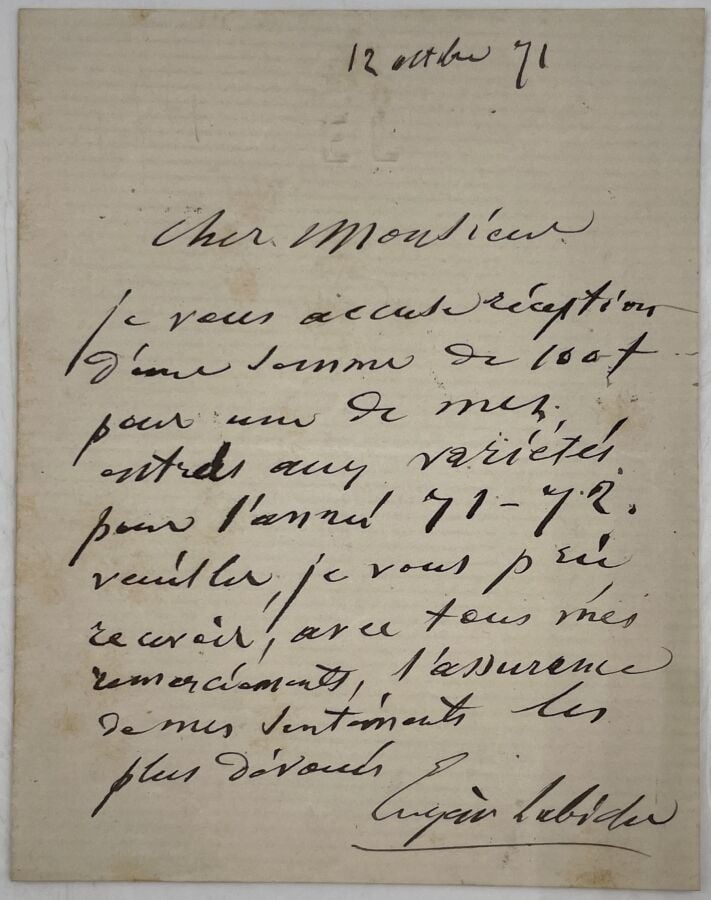 12 octobre 71
Cher Monsieur
je vous accuse réception
d'une somme de 100 f
pour une de mes
entrées aux variétés
pour l'année 71-72.
veuillez, je vous prie
recevoir, avec tous mes
remerciements, l'assurance
de mes sentiments les
plus dévoués
Eugène Labiche